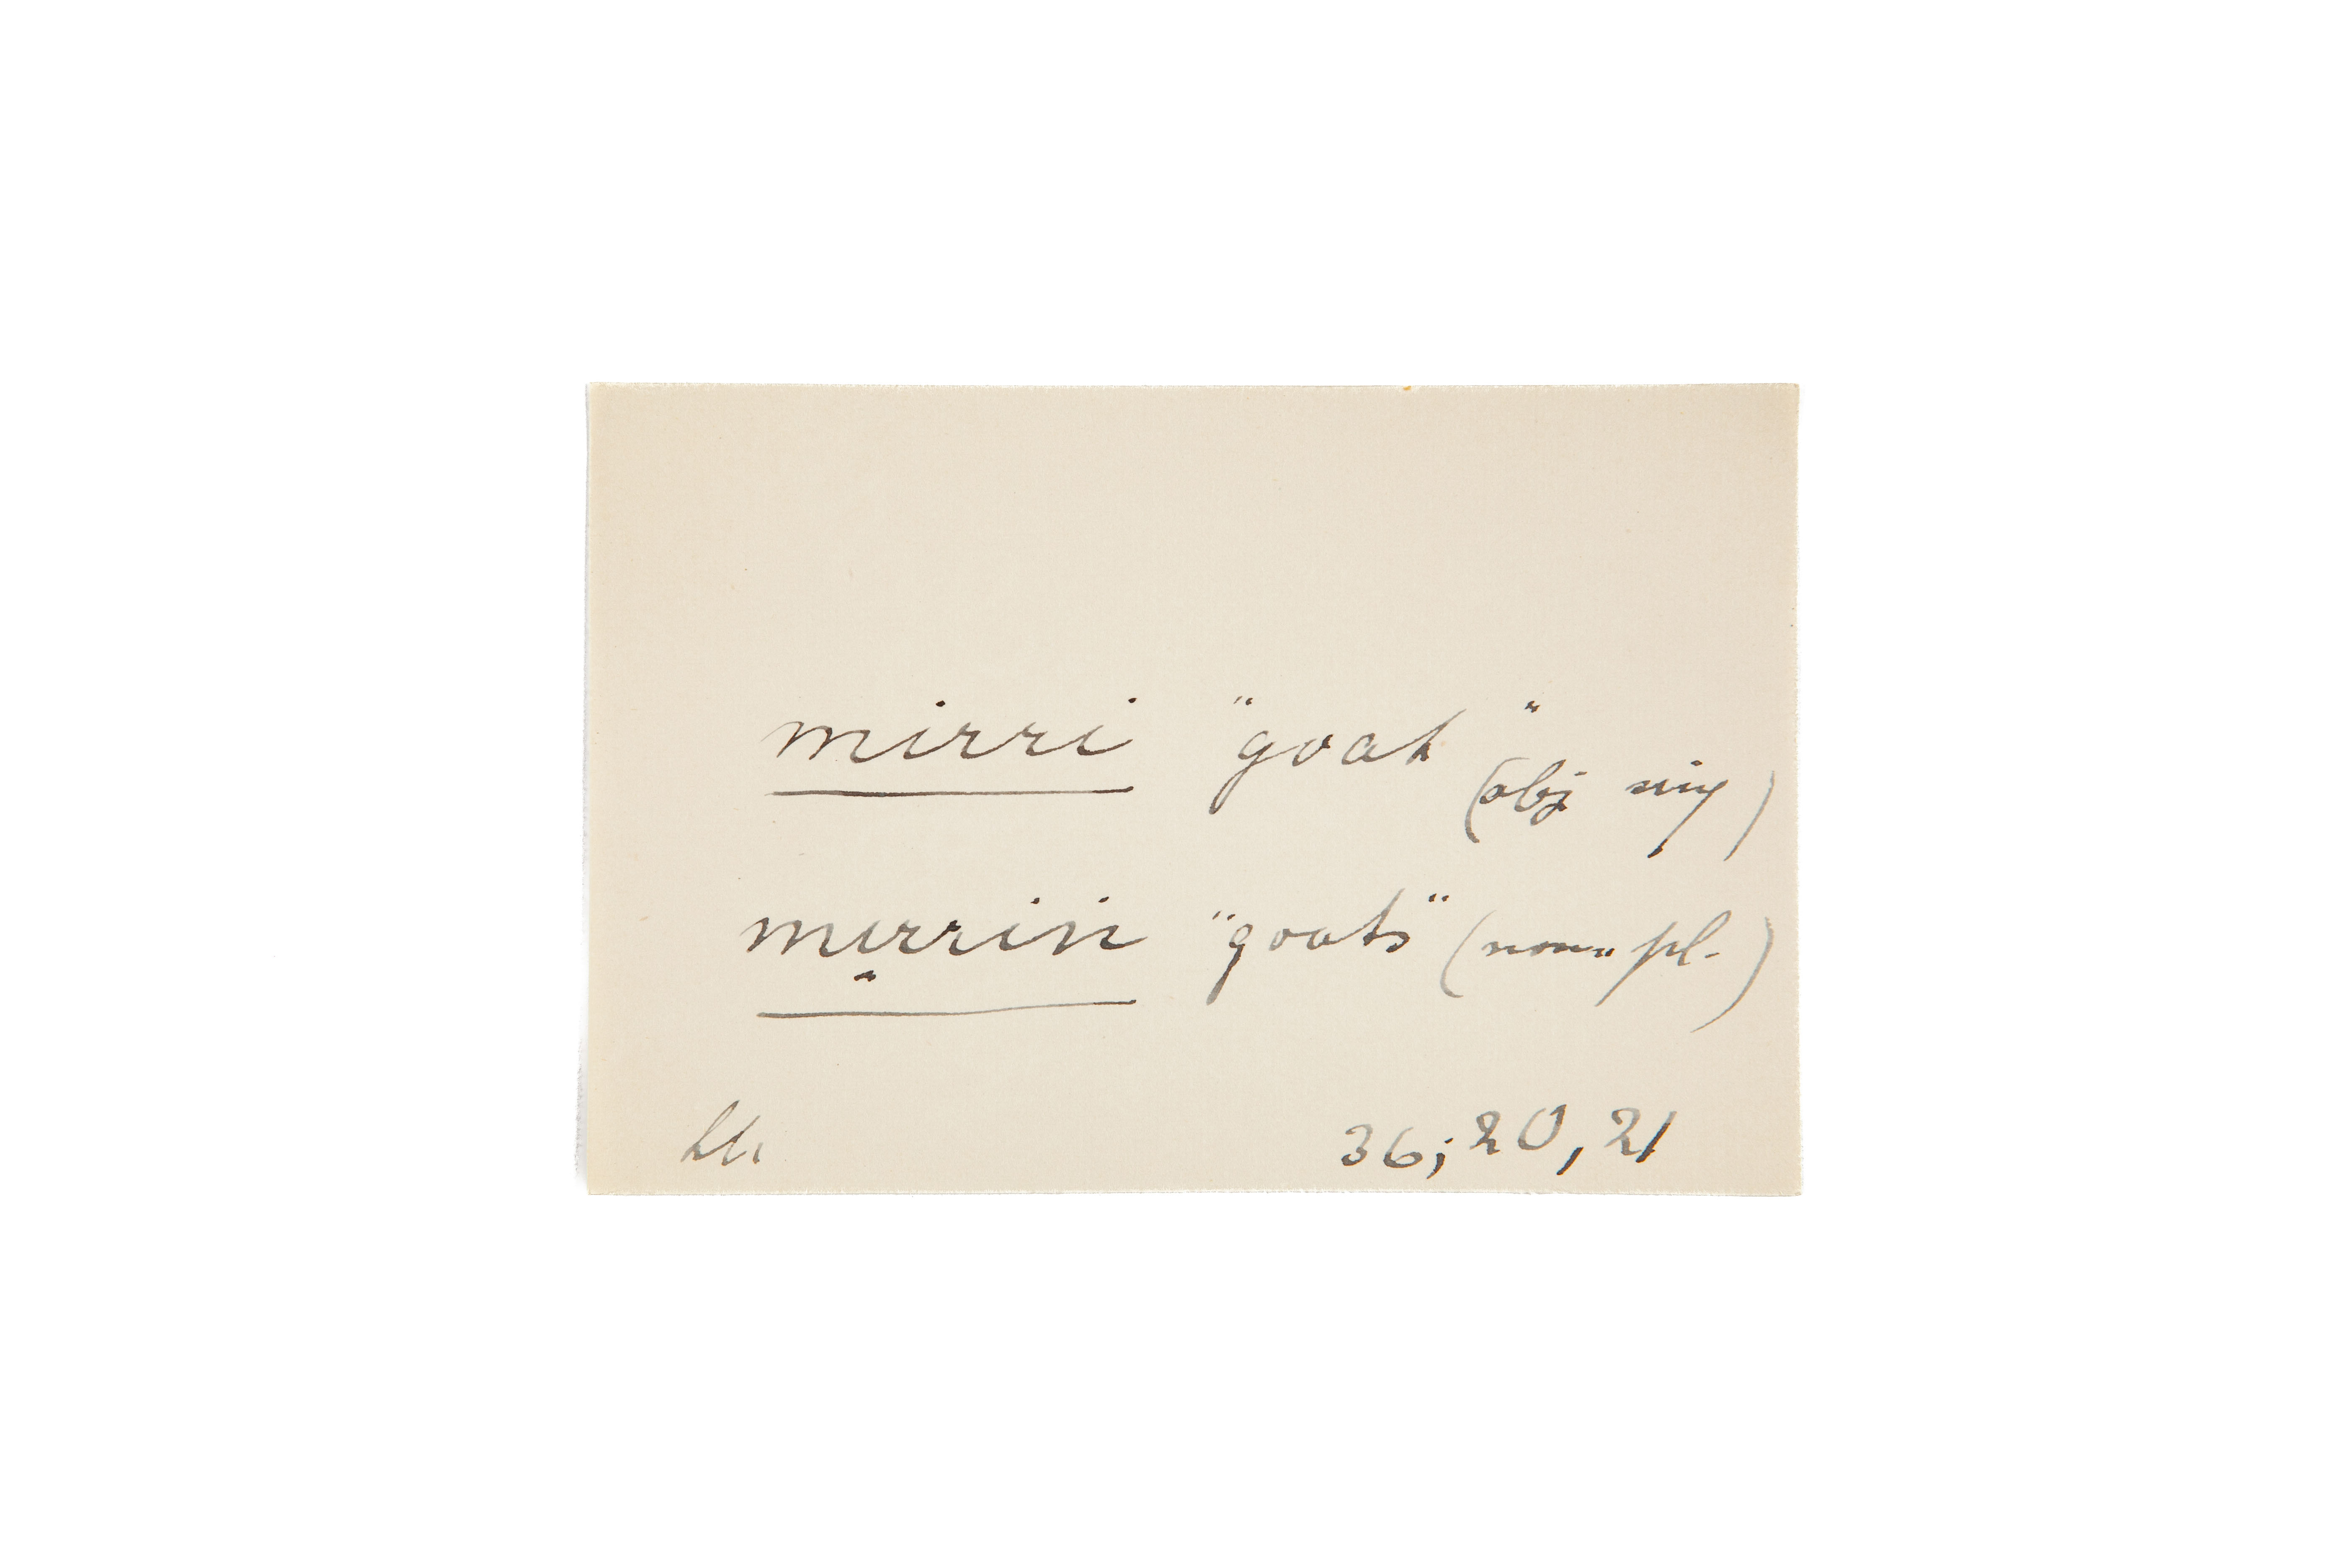 mirri "goat"
(obj sing)
"goats" (nom. pl.)
36; 20, 21